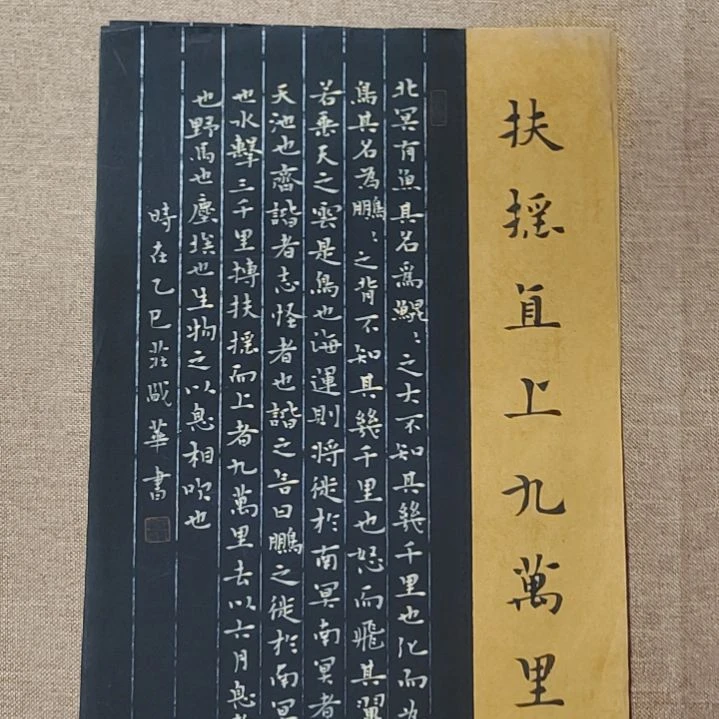 扶搖直上九萬里
北冥有魚其名爲鯤〻之大不知其幾千里也化而為
鳥其名為鵬〻之背不知其幾千里也怒而飛其翼
若垂天之雲是鳥也海運則將徙於南冥南冥者
天池也齊諧者志怪者也諧之言曰鵬之徙於南冥
也水擊三千里摶扶搖而上者九萬里去以六月息者
也野馬也塵埃也生物之以息相吹也
時在乙巳莊華書